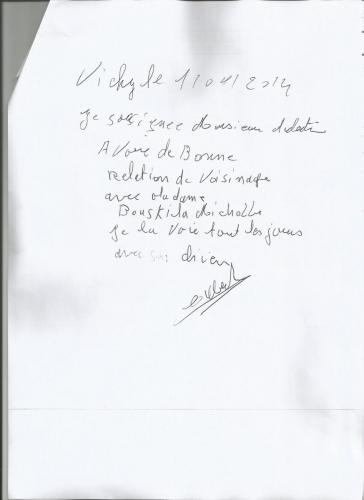 Vichy le 11 04 2014
je sousignee Monsieur
A Voire de Bonne
reletion de Voisinage
avec Madame
Bouskila Michelle
je la Voie tout les jours
avec son chien